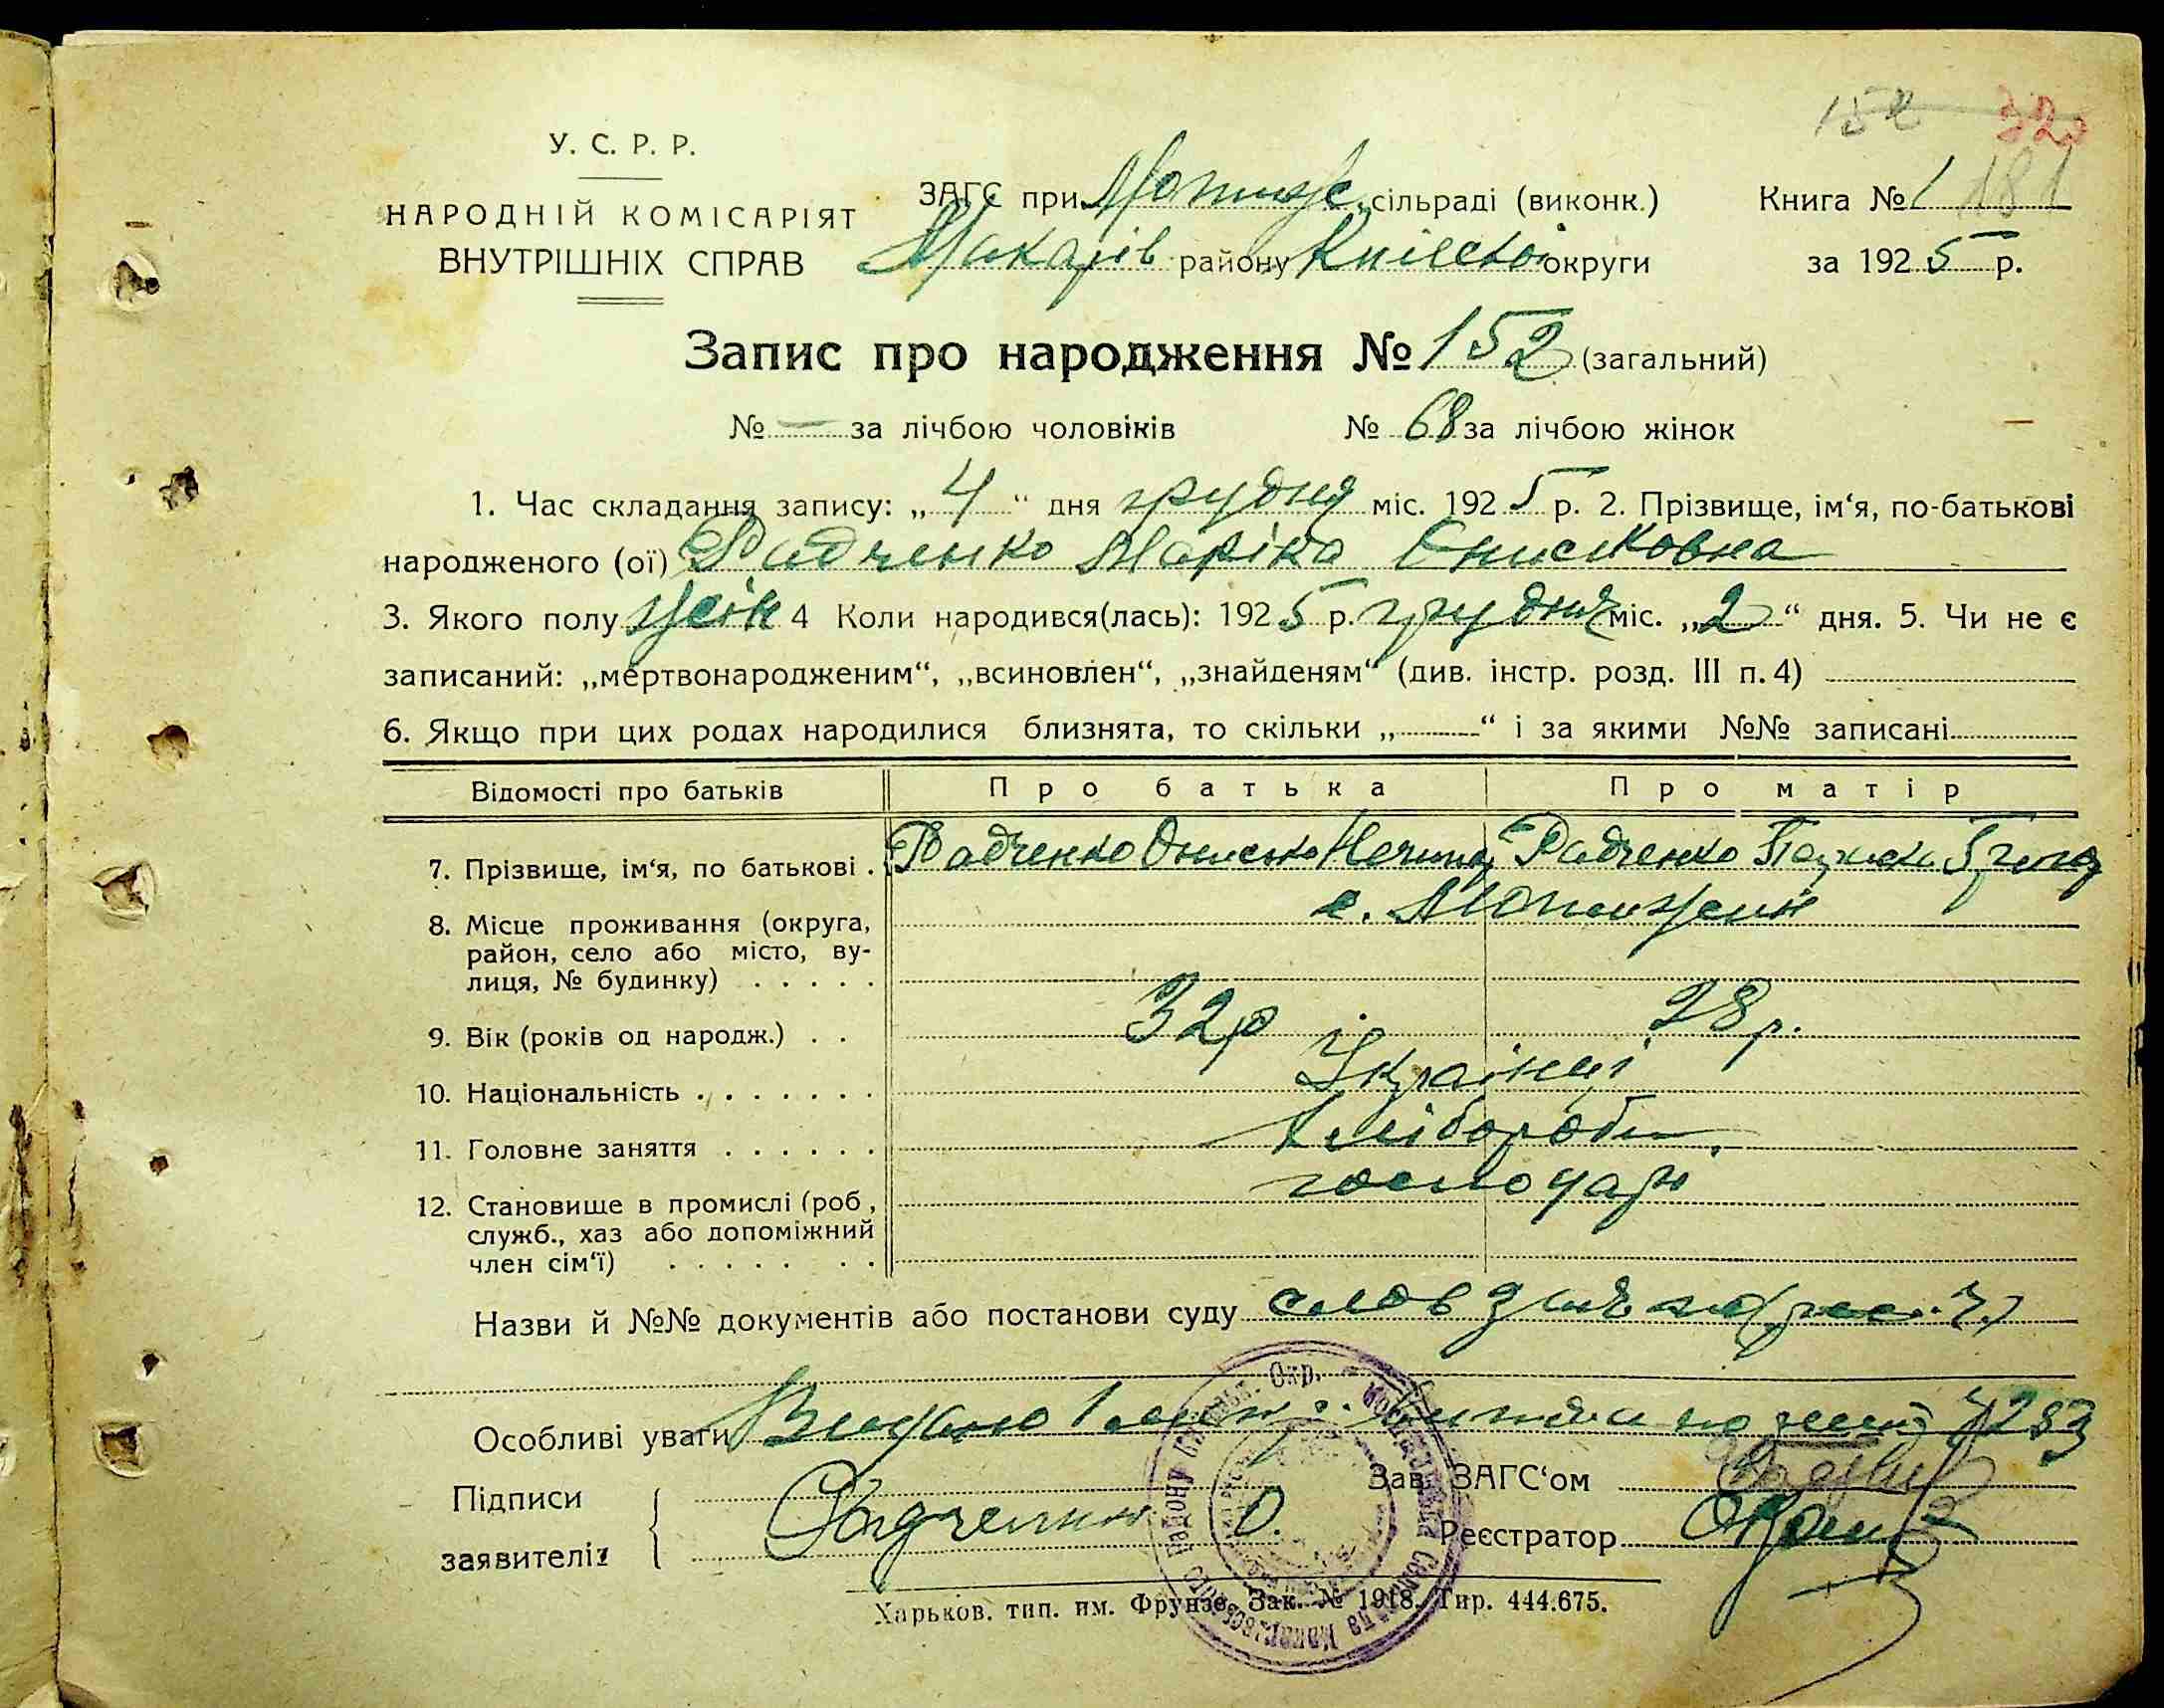 152 32
У. С. Р. Р.
НАРОДНІЙ КОМІСАРІЯТ
ВНУТРІШНІХ СПРАВ
ЗАГС при Мотиж. сільраді (виконк.)
Книга № 1 181
Макарів району Київської округи
за 1925 р.
Запис про народження № 152 (загальний)
№ — за лічбою чоловіків № 68 за лічбою жінок
1. Час складання запису: „4“ дня грудня міс. 1925 р. 2. Прізвище, ім‘я, по-батькові
народженого (ої) Радченко Маріка Онисковна
3. Якого полу жін 4 Коли народився(лась): 1925 р. грудня міс. „2“ дня. 5. Чи не є
записаний: „мертвонародженим“, „всиновлен“, „знайденям“ (див. інстр. розд. III п. 4)
6. Якщо при цих родах народилися близнята, то скільки „ “ і за якими №№ записані
Відомості про батьків Про батька Про матір
7. Прізвище, ім‘я, по батькові . Радченко Онисько Радченко
8. Місце проживання (округа, с. Мотижин
район, село або місто, ву-
лиця, № будинку) . . . . .
9. Вік (років од народж.) . . 32 р 28 р.
10. Національність . . . . . . . Українці
11. Головне заняття . . . . . . Хлібороби
12. Становище в промислі (роб., господарі
служб., хаз або допоміжний
член сім‘ї) . . . . . . .
Назви й №№ документів або постанови суду
Особливі уваги Видано
Підписи
заявителів
Радченко О.
Зав. ЗАГС‘ом
Реєстратор
Харьков. тип. им. Фрунзе. Зак. № 1918. Тир. 444.675.